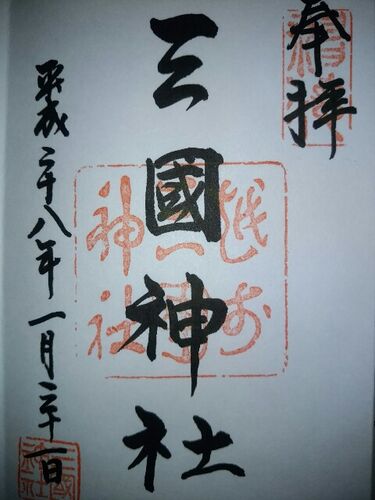 奉拝
三國神社
平成二十八年一月二十一日
越前
三國
神社